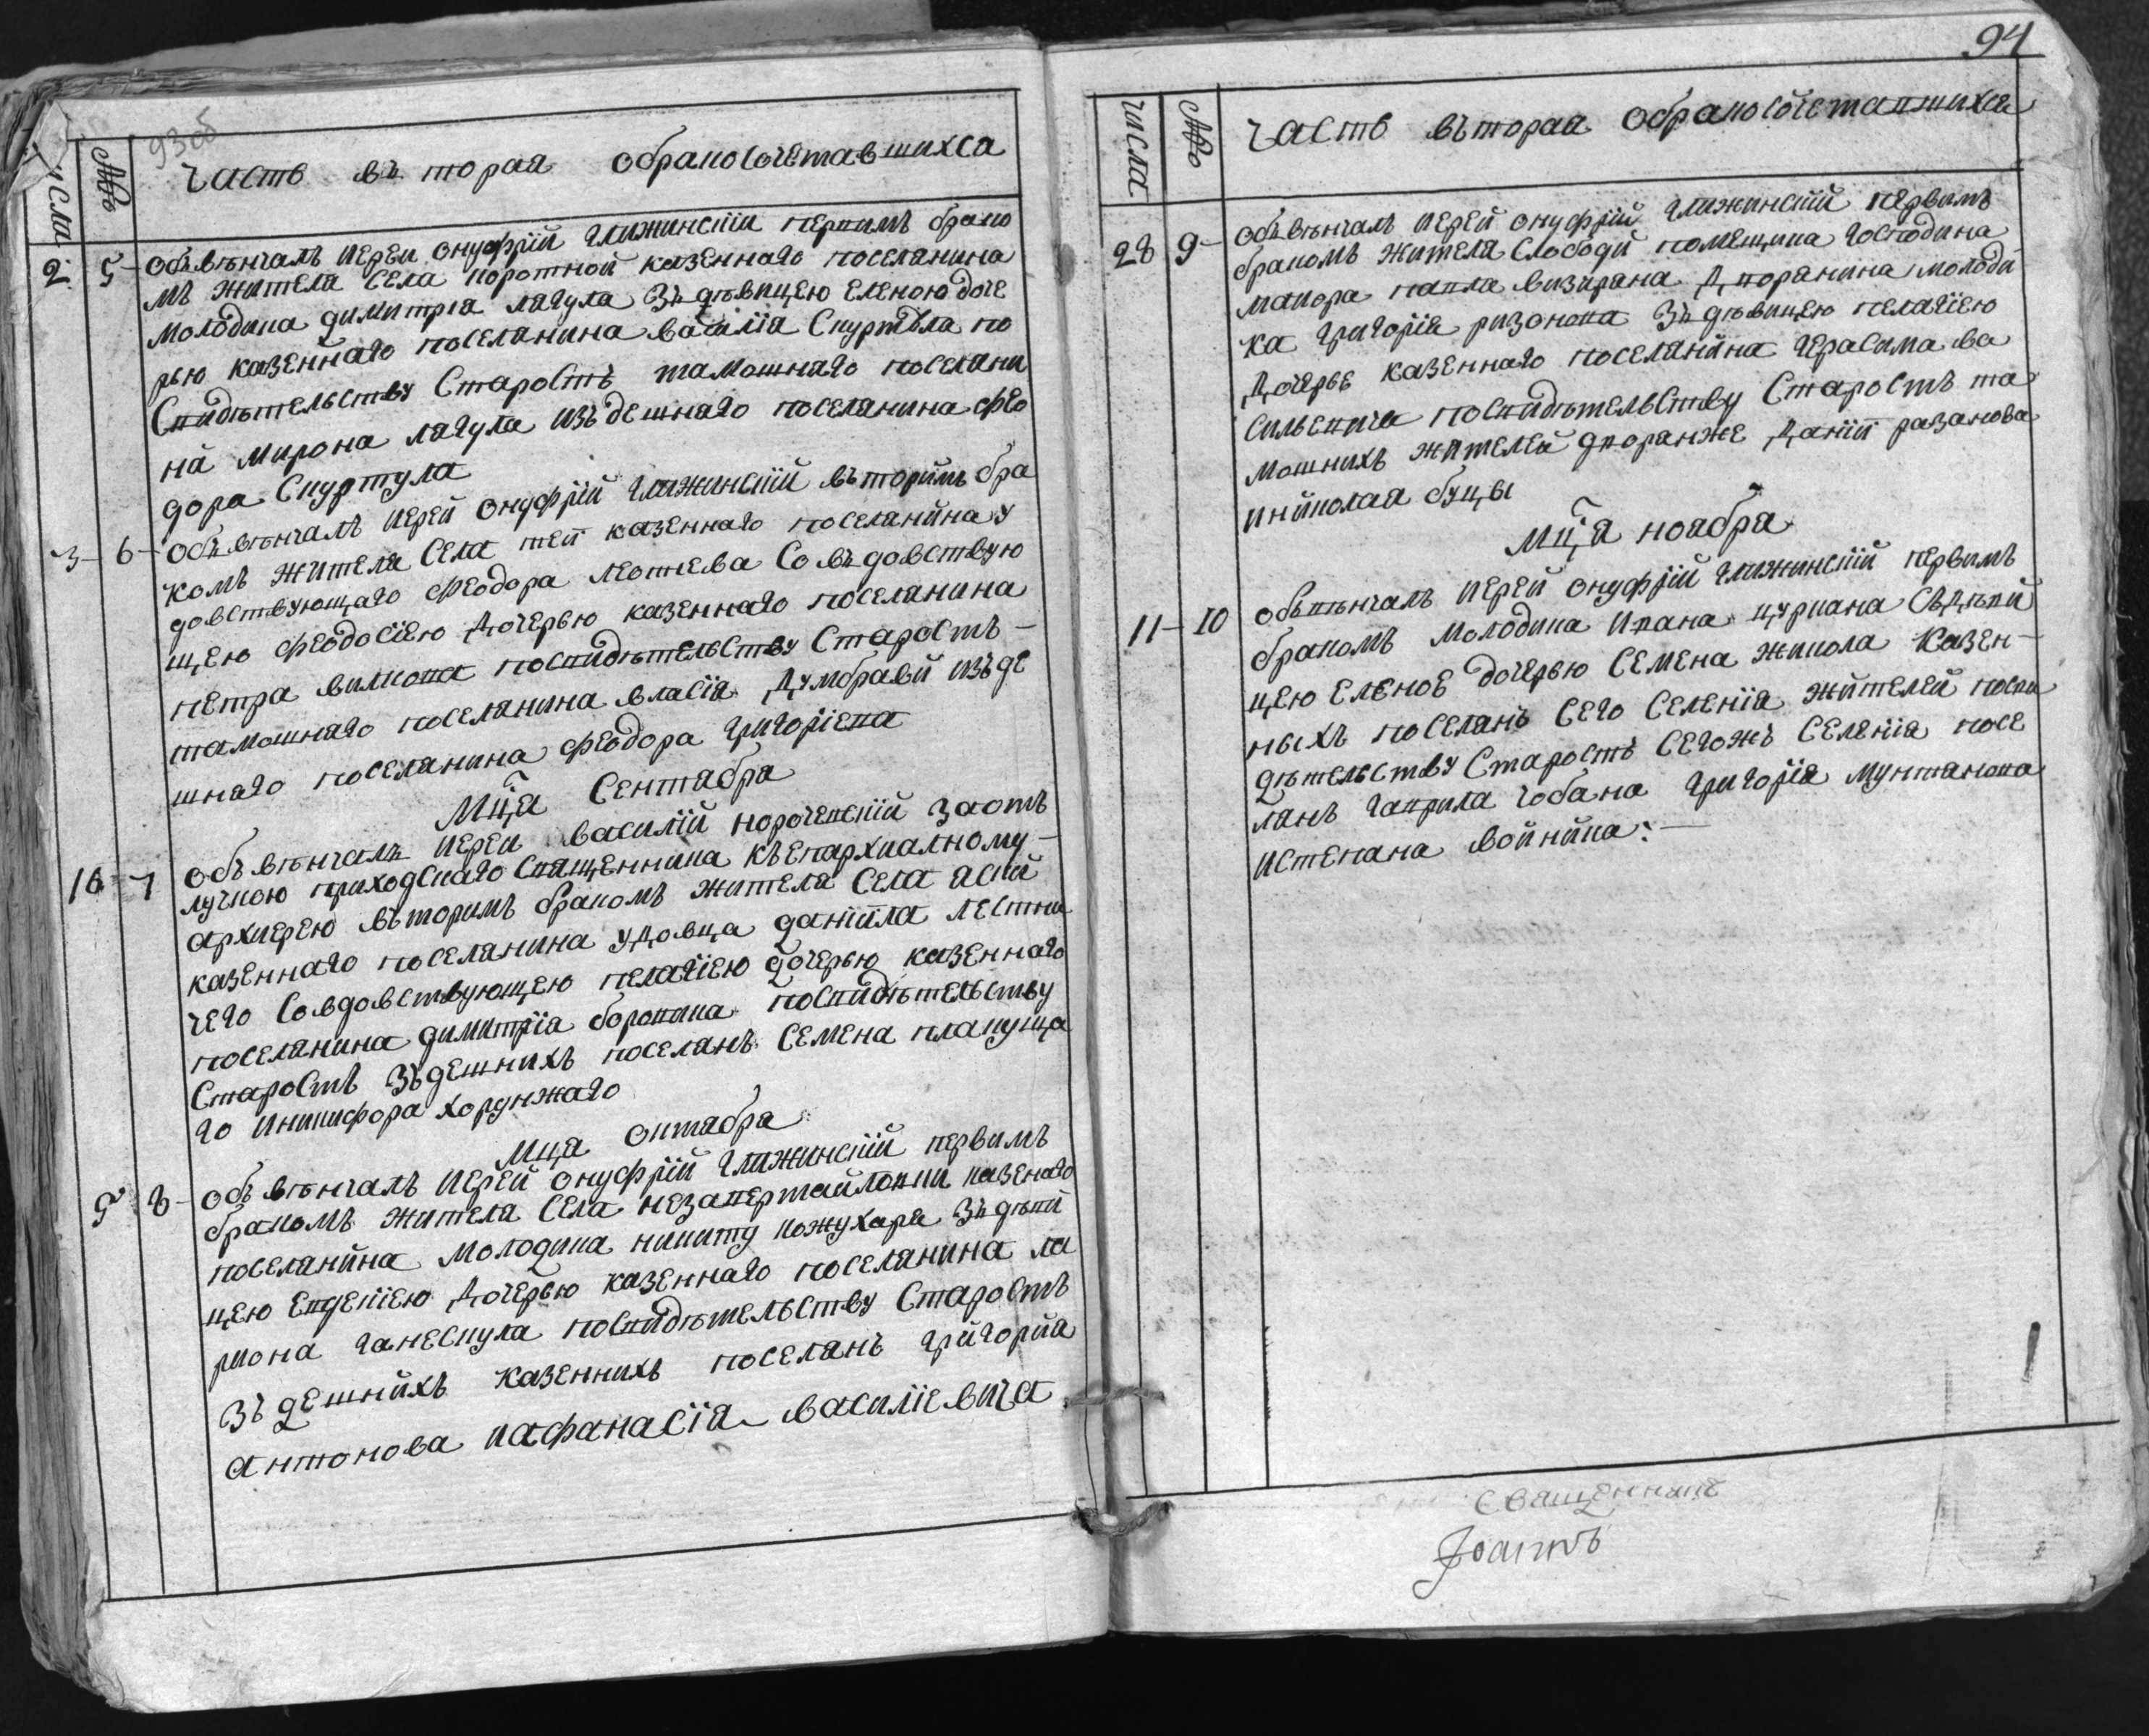 93об
числа
№
Часть въторая обракосочетавшихся
2 5 Объвѣнчалъ иерей онуфрїй глижинскїй первимъ брако
мъ жителя села коротной казеннаго поселянина
молодика димитрїа лягула зъ дѣвицею еленою доче
рью казеннаго поселянина василїя скуртула по
свидѣтельству старостъ тамошнаго поселяни
на мирона лягула изъдешнаго поселянина фео
дора скуртула
3 6 Объвѣнчалъ иерей онуфрїй глижинскїй въторимъ бра
комъ жителя села тей казеннаго поселянина у
довствующаго феодора леонтева со въдовствую
щею феодосїею дочерью казеннаго поселянина
петра вилкова посвидѣтельству старостъ
тамошнаго поселянина власїя думбравы изъде
шнаго поселянина феодора григорїева
Мц҃а сентабра
16 7 Объвѣнчалъ иерей василїй корочевскїй заотъ
лучкою приходскаго священника къепархиалному
архиерею въторимъ бракомъ жителя села яски
казеннаго поселянина удовца данїила лестни
чего совдовствующею пелагїею дочерью казеннаго
поселянина димитрїа боровика посвидѣтельству
старостъ зъдешнихъ поселянъ семена плакуща
го иникифора хорунжаго
Мц҃а октабра
5 8 Объвѣнчалъ иерей онуфрїй глижинскїй первимъ
бракомъ жителя села незавертайловки казенаго
поселянина молодика никиту кожухаря зъ дѣви
цею евдекїею дочерью казеннаго поселянина ла
риона ганескула посвидѣтельству старостъ
зъдешнихъ казеннихъ поселянъ григорїа
антонова иафанасїя василїевича
94
числа
№
Часть въторая обракосочетавшихся
28 9 Объвѣнчалъ иерей онуфрїй глижинскїй первимъ
бракомъ жителя слободи помещика господина
маиора павла визирана дворянина молоди
ка григорїя ризонова зъ дѣвицею пелагїею
дочерье казеннаго поселянина герасима ва
сильевича посвидѣтельству старостъ та
мошнихъ жителей дворянже данїи разанова
иниколая буцы
Мц҃а ноабра
11 10 Объвѣнчалъ иерей онуфрїй глижинскїй первимъ
бракомъ молодика ивана цуркана съдѣви
цею еленое дочерью семена жикола казен
ныхъ поселянъ сего селенїя жителей посви
дѣтельству старостъ сегожъ селенїя посе
лянъ гаврила чобана григорїя мунтанова
истепана войника:—
Священникъ
Іоаннъ